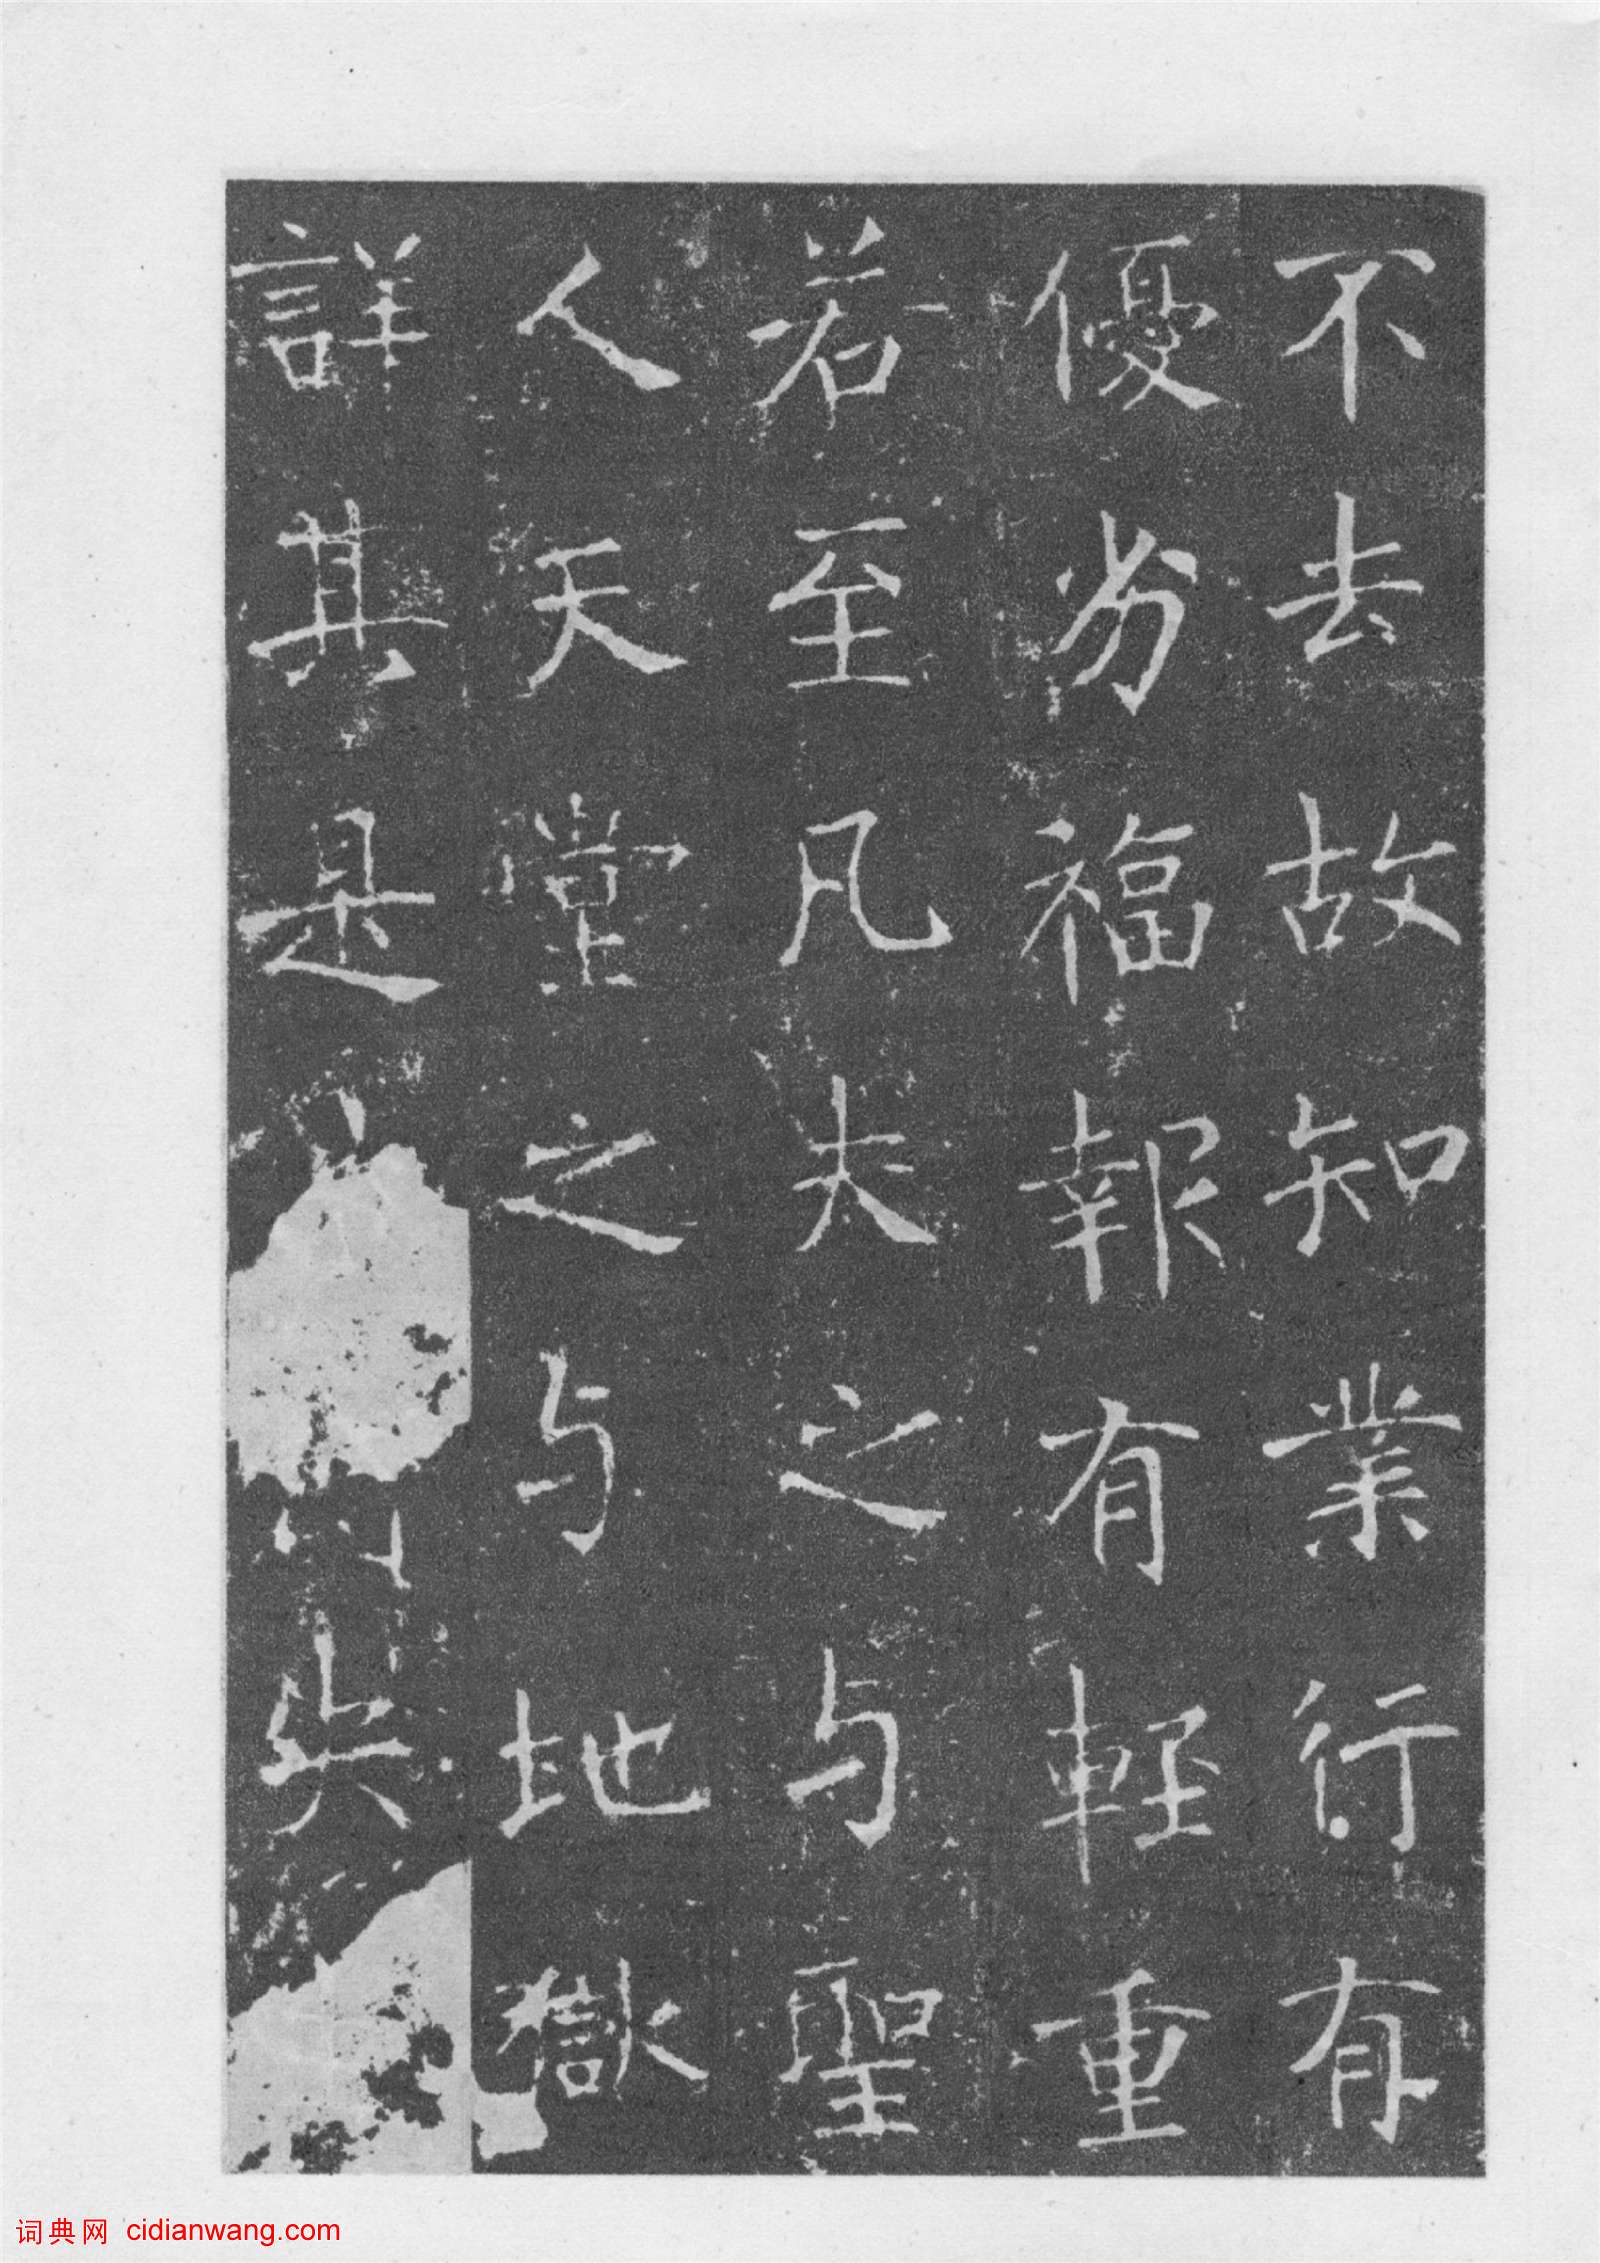 不去故知業行有
優劣福報有輕重
若至凡夫之与聖
人天堂之与地獄
詳其是
词典网 cidianwang.com